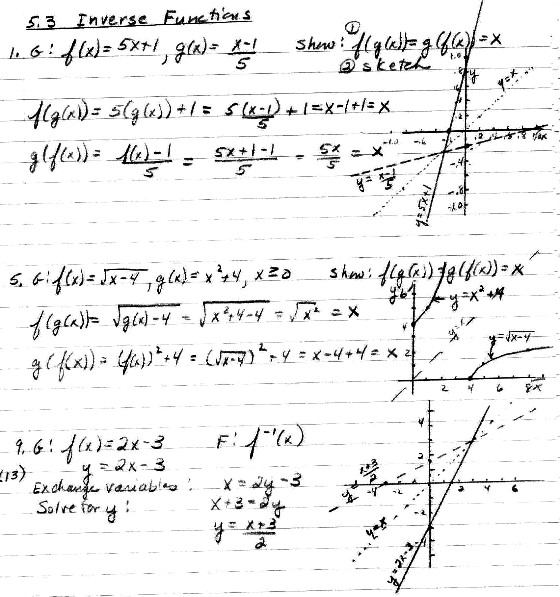 5.3 Inverse Functions
1. G: f(x) = 5x+1, g(x) = (x-1)/5 Show: ① f(g(x)) = g(f(x)) = x
② sketch
f(g(x)) = 5(g(x)) + 1 = 5(x-1)/5 + 1 = x-1+1 = x
g(f(x)) = (f(x)-1)/5 = (5x+1-1)/5 = 5x/5 = x
y
y=x
y = (x-1)/5
y=5x+1
5. G: f(x) = √(x-4), g(x) = x²+4, x ≥ 0 Show: f(g(x)) = g(f(x)) = x
f(g(x)) = √(g(x)-4) = √(x²+4-4) = √x² = x
g(f(x)) = (f(x))² + 4 = (√(x-4))² + 4 = x-4+4 = x
y 6
y = x²+4
4
y = √(x-4)
2
2 4 6 8 x
9. G: f(x) = 2x-3 F: f⁻¹(x)
(13) y = 2x-3
Exchange variables: x = 2y-3
Solve for y: x+3 = 2y
y = (x+3)/2
4
2
-4 -2 2 4 6
y = (x+3)/2
y=x
y=2x-3